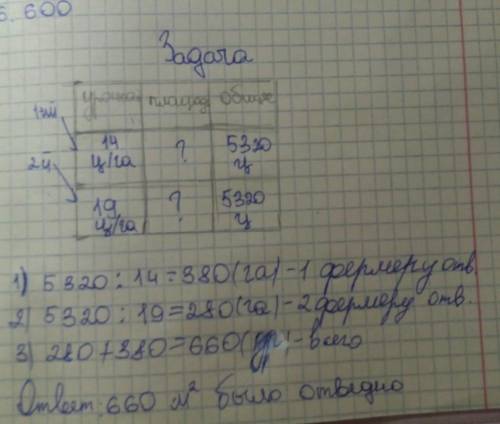 600
Задача
урожай площад общее
1ый 14 ц/га ? 5320 ц
2й 19 ц/га ? 5320 ц
1) 5320 : 14 = 380 (га) - 1 фермеру отв.
2) 5320 : 19 = 280 (га) - 2 фермеру отв.
3) 280 + 380 = 660 - всего
Ответ: 660 м² было отведно